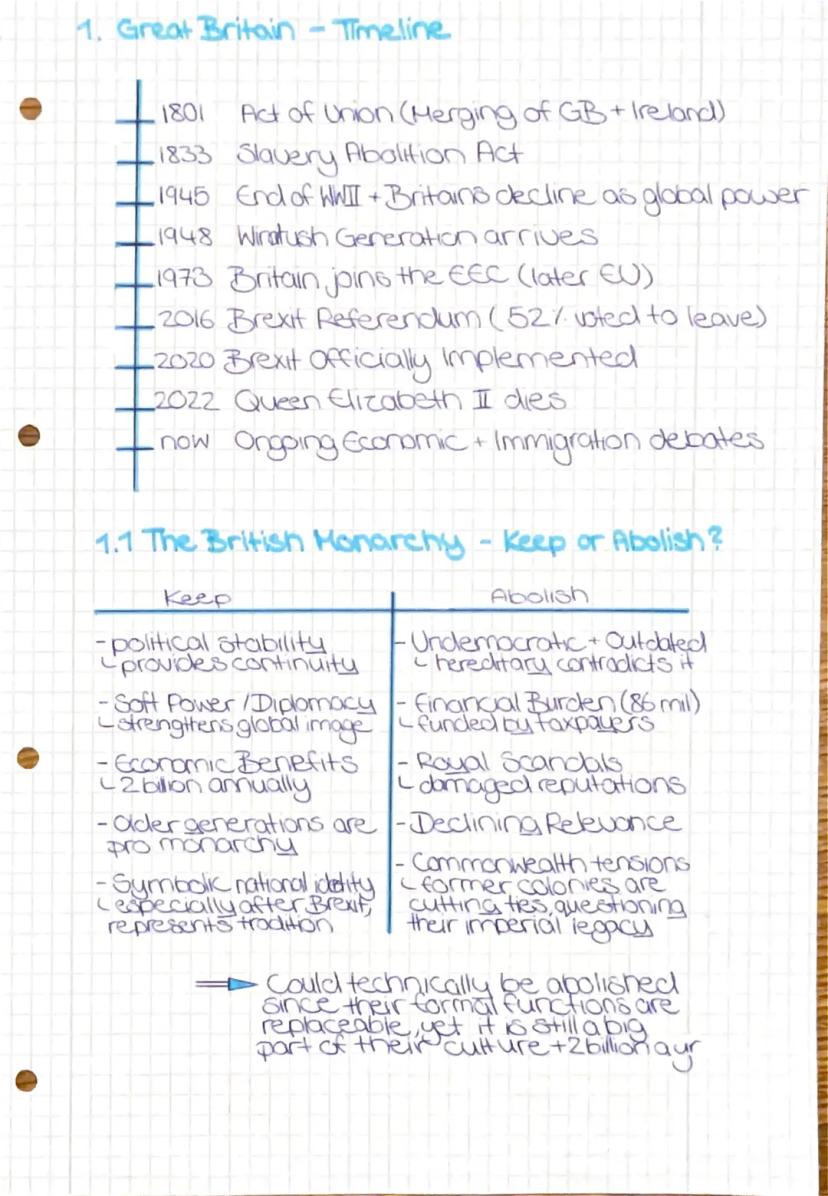 1. Great Britain - Timeline
1801 Act of Union (Merging of GB + Ireland)
1833 Slavery Abolition Act
1945 End of WWII + Britains decline as global power
1948 Windrush Generation arrives
1973 Britain joins the EEC (later EU)
2016 Brexit Referendum (52% voted to leave)
2020 Brexit Officially Implemented
2022 Queen Elizabeth II dies
now Ongoing Economic + Immigration debates
1.1 The British Monarchy - Keep or Abolish?
Keep
- political stability
↳ provides continuity
- Soft Power / Diplomacy
↳ strengthens global image
- Economic Benefits
↳ 2 billion annually
- Older generations are
pro monarchy
- Symbolic national idetity
↳ especially after Brexit,
represents tradition
Abolish
- Undemocratic + Outdated
↳ hereditary contradicts it
- Financial Burden (86 mil)
↳ funded by taxpayers
- Royal Scandals
↳ damaged reputations
- Declining Relevance
- Commonwealth tensions
↳ former colonies are
cutting ties, questioning
their imperial legacy
⇒ Could technically be abolished
since their formal functions are
replaceable, yet it is still a big
part of their culture + 2 billion a yr